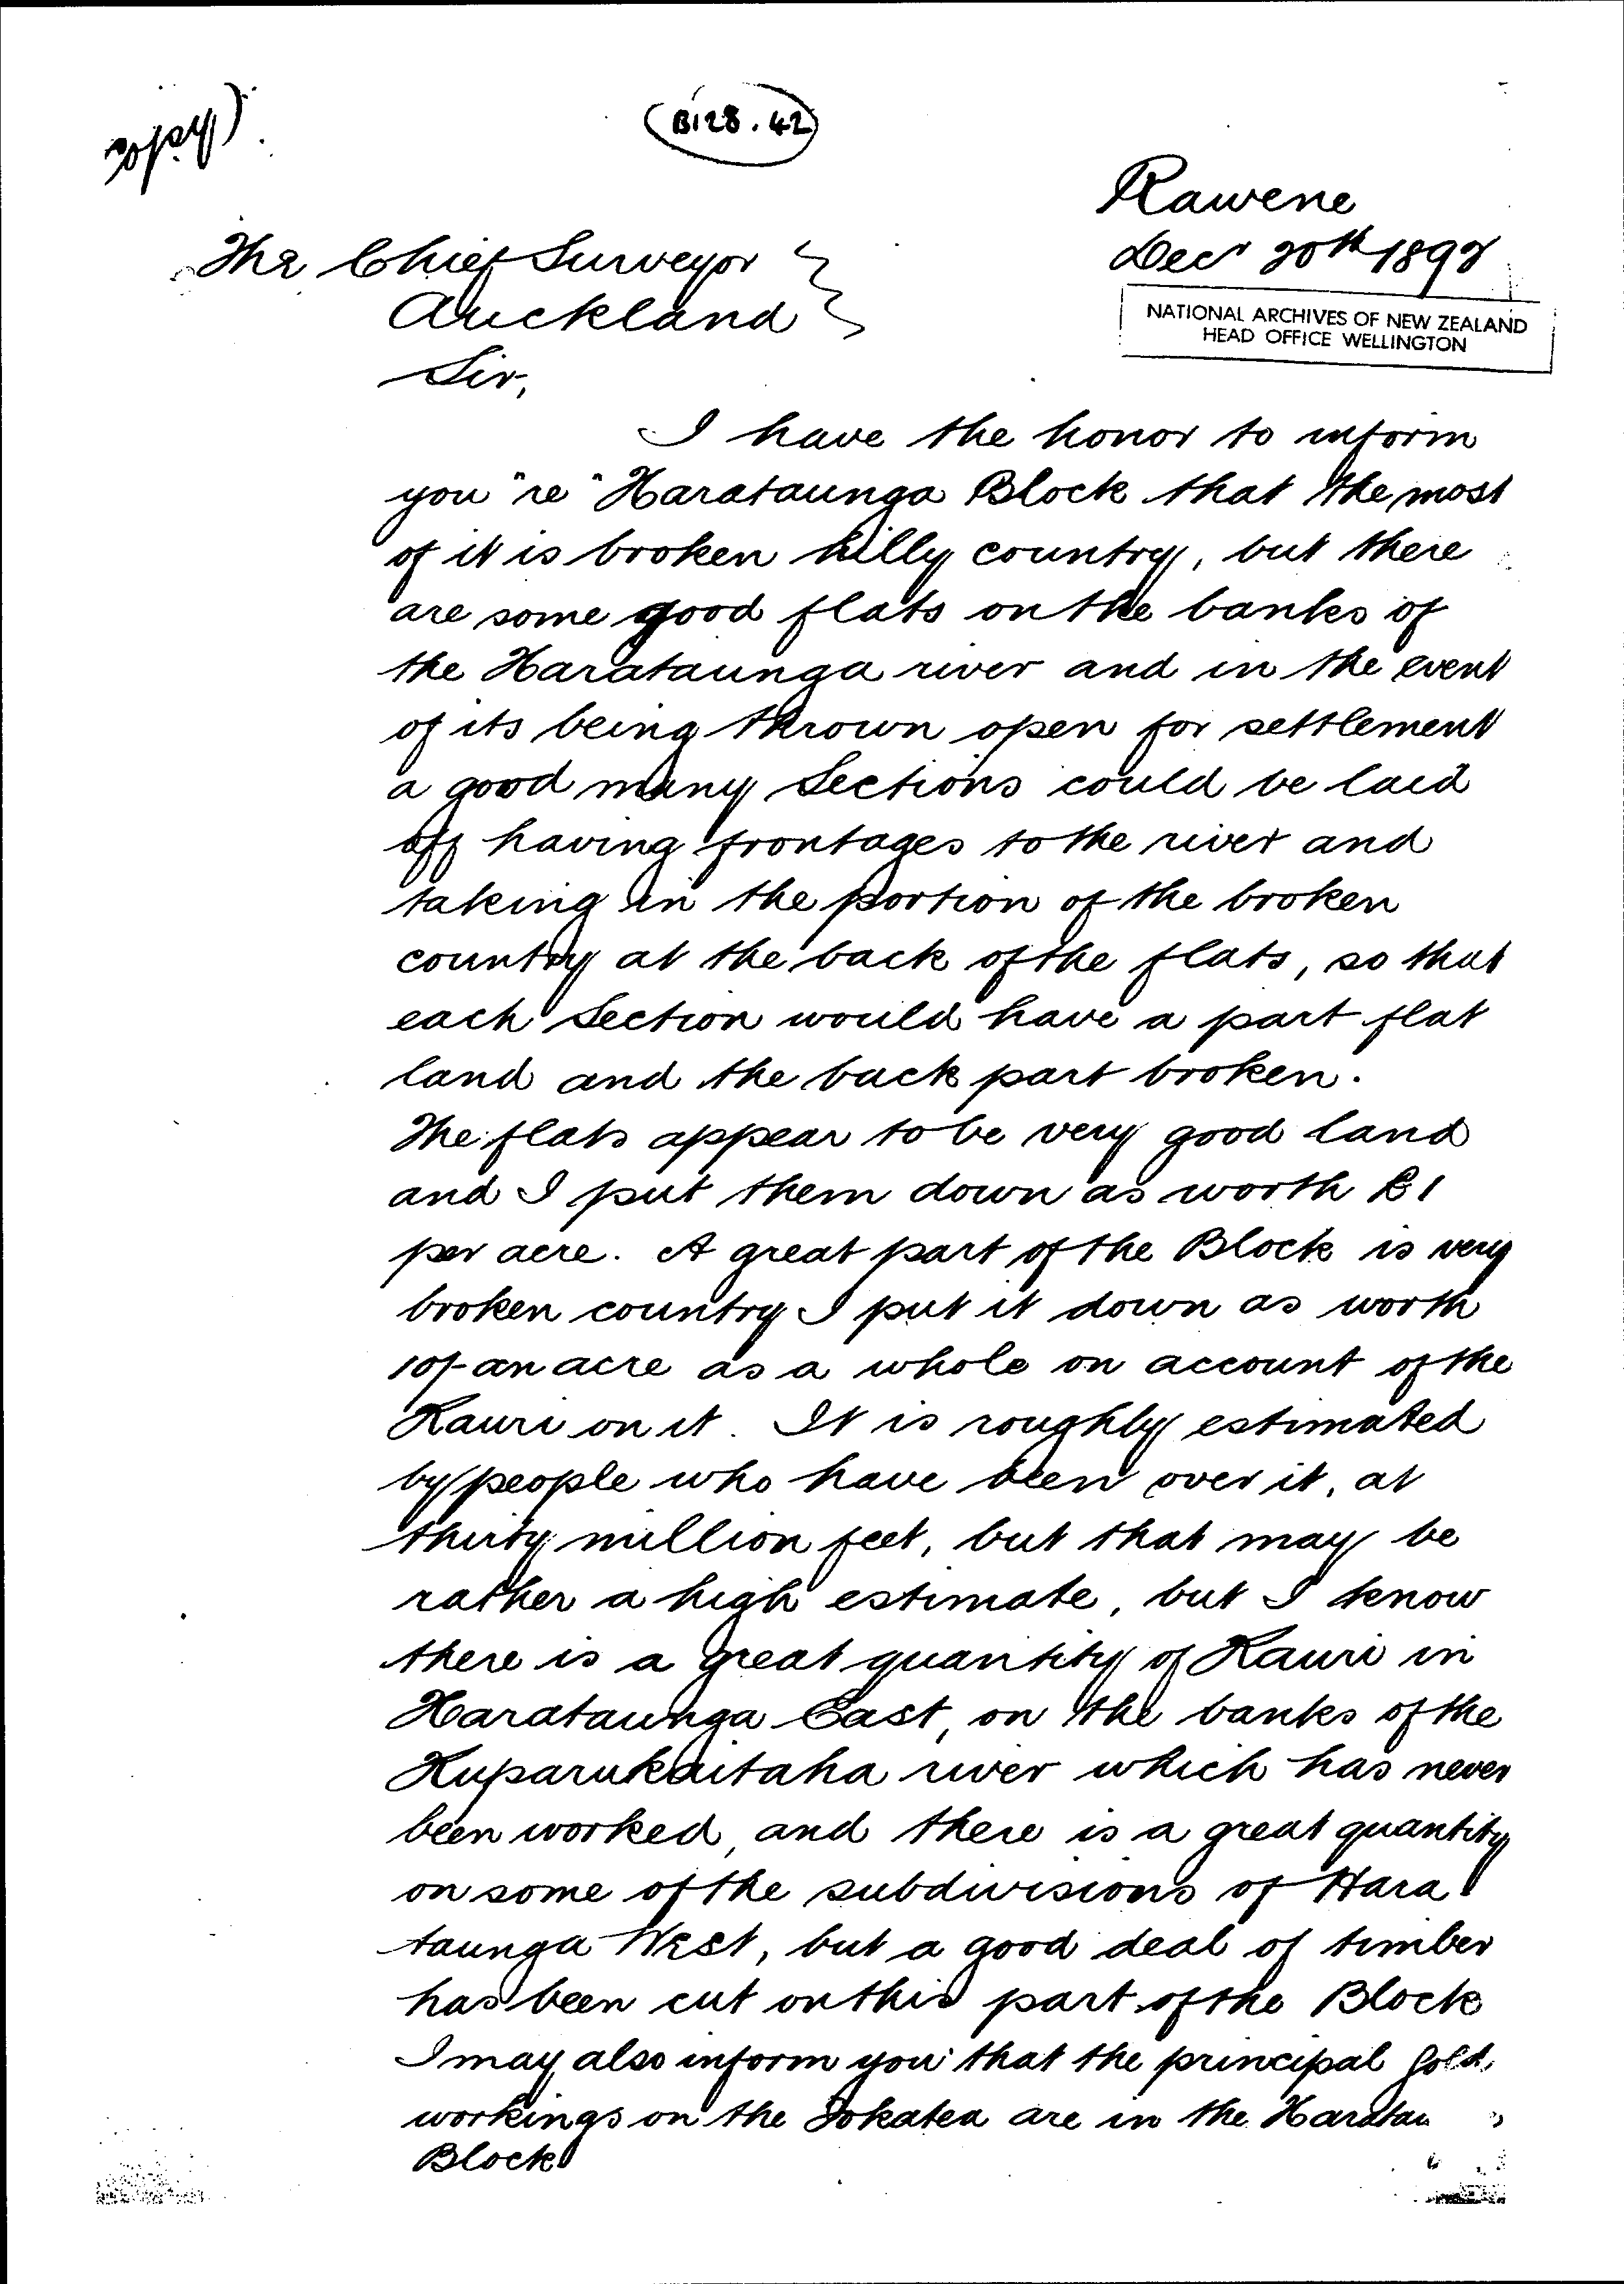 copy).
B128.42
Rawene
Decr 20th 1892
The Chief Surveyor
Auckland
NATIONAL ARCHIVES OF NEW ZEALAND
HEAD OFFICE WELLINGTON
Sir,
I have the honor to inform
you "re" Harataunga Block that the most
of it is broken hilly country, but there
are some good flats on the banks of
the Harataunga river and in the event
of its being thrown open for settlement
a good many Sections could be laid
off having frontages to the river and
taking in the portion of the broken
country at the back of the flats, so that
each Section would have a part flat
land and the back part broken.
The flats appear to be very good land
and I put them down as worth £1
per acre. A great part of the Block is very
broken country I put it down as worth
10/- an acre as a whole on account of the
Kauri on it. It is roughly estimated
by people who have been over it, at
thirty million feet, but that may be
rather a high estimate, but I know
there is a great quantity of Kauri in
Harataunga East, on the banks of the
Kuparukaitaha river which has never
been worked, and there is a great quantity
on some of the subdivisions of Hara
taunga West, but a good deal of timber
has been cut on this part of the Block
I may also inform you that the principal Gold
workings on the Tokatea are in the Haratau
Block